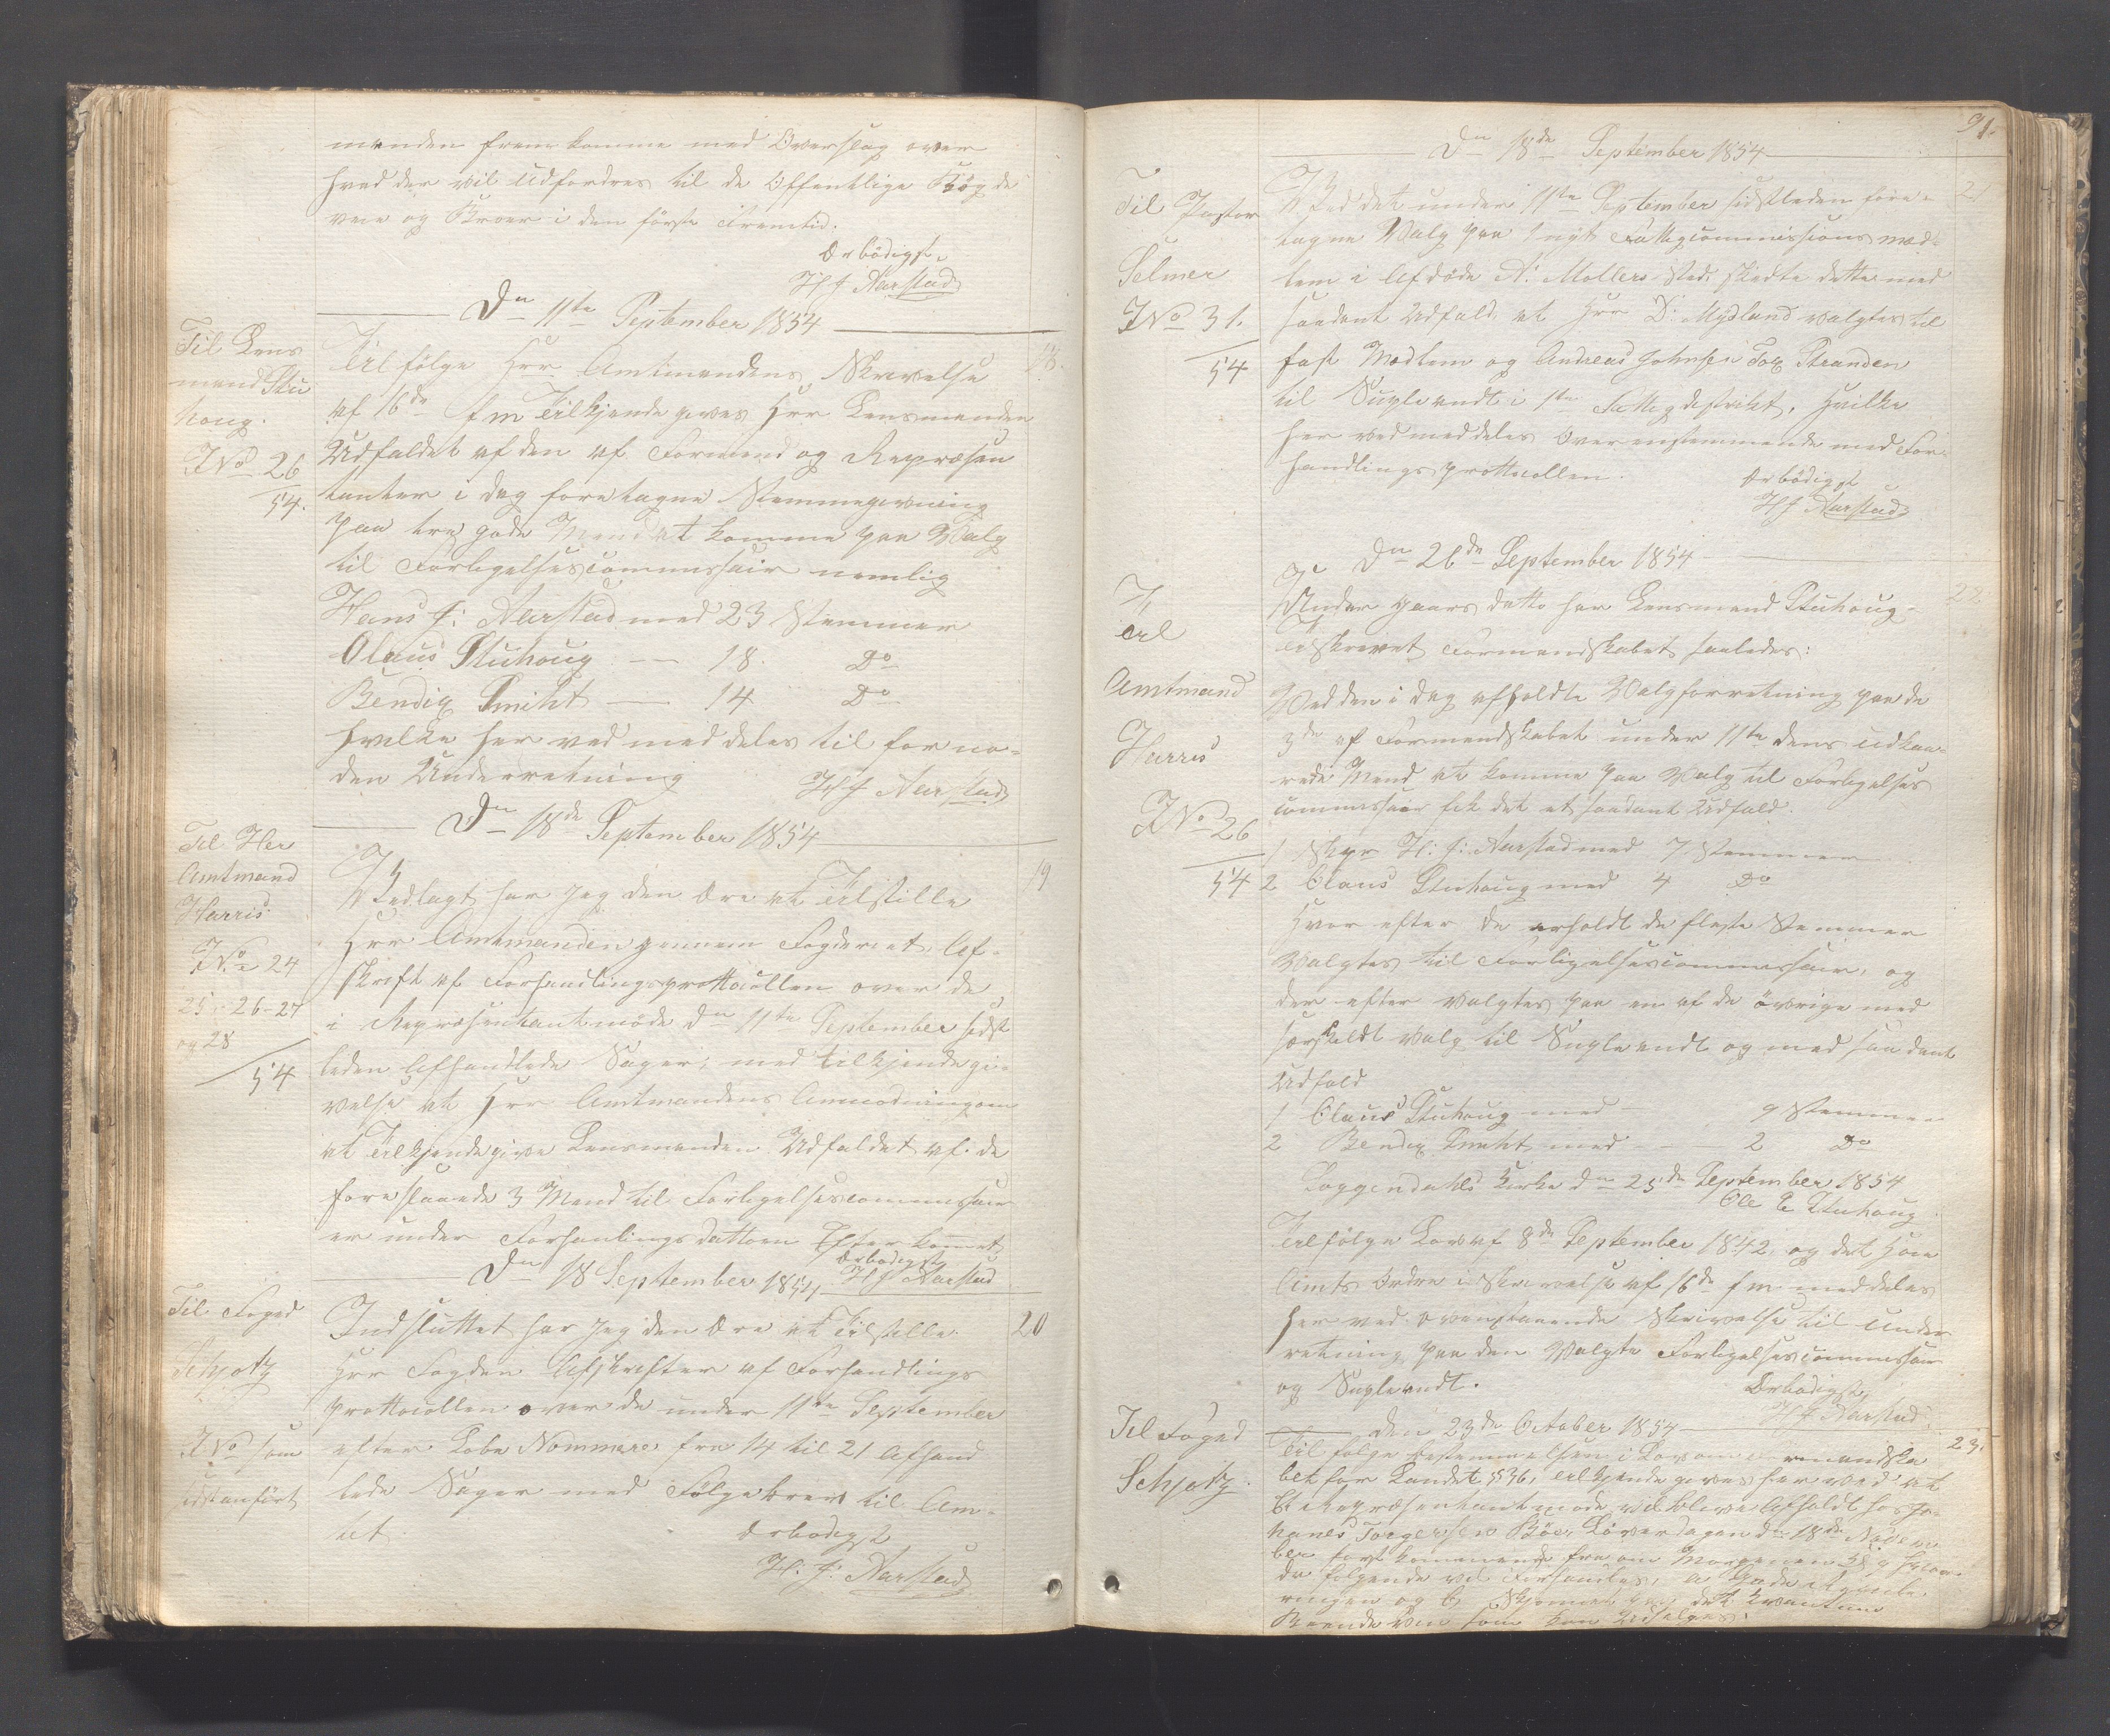 manden frem komme med Overslag over
hvad der vil Udfordres til de Offentlige
veie og Broer i den förste Fremtid.
Ærbödigst
H J Aarstad
Dn 11te September 1854
Til Lens
mand Stu
houg.
J No 26
54.
18.
Til fölge Herr Amtmandens Skrivelse
af 16de f m Tilkjende gives Herr Lensmanden
Udfaldet af den af Formend og Repræsen
tanter i dag foretagne Stemmegivning
paa tre gode Mend at komme paa Valg
til Forligelsescommissair nemlig
Hans J: Aarstad med 23 Stemmer
Olaus Stuhoug — 18. Do
Bendix Smiht — 14 Do
hvilke her ved med deles til for nø-
den Underretning
H J Aarstad
Dn 18de September 1854
Til Her
Amtmand
Harris
J No 24
25-26-27
og 28
54
19
Vedlagt har Jeg den Ære at Tilstille
Herr Amtmanden gennem Fogderiet Af-
skrift af Forhandlingsprottocollen over de
i Repræsentantmöde Dn 11te September sidst
leden Afhandlede Sager, med tilkjendegi-
velse at Herr Amtmandens Anmodning om
at Tilkjendegive Lensmanden Udfaldet af de
foreslaaede 3 Mend til Forligelsescommissair
er under Forhanlings Dattoen Efter kommet
Ærbödigst
H J Aarstad
Dn 18 September 1854
Til Foged
Schjøtz
J No som
sidst anfört
20
Indsluttet har Jeg den Ære at Tilstille
Herr Fogden Afskrifter af Forhandlings
prottocollen over de under 11te September
efter Löbe Nommere fra 14 til 21 Afhand
lede Sager med Fölgebrev til Am-
tet
Ærbödigst
H: J: Aarstad
91.
Dn 18de September 1854
Til Pastor
Selmer
J No 31.
54
21
Ved det under 11te September sidstleden fore-
tagne Valg paa 1 nyt Fattigcommissions med-
lem i Afdöde A: Mollers sted, skedte dette med
saadant Udfald at Herr D: Mydland valgtes til
fast Medlem og Andreas Johnsen Tox Stranden
til Supleandt i 1ste Fattigdistrikt. Hvilke
her ved meddeles Overenstemmende med For-
handlings prottocollen.
Ærbödigst
H J Aarstad
Dn 26de September 1854
Til
Amtmand
Harris
J No 26
54
22
Under gaars datto har Lensmand Stuhoug
Tilskrevet Formendskabet saaledes:
Ved den i dag afholdte Valgforretning paa de
3de af Formendskabet under 11te dens udkaa-
rede Mend at komme paa Valg til Forligelses
commissair fik det et saadant Udfald.
1 Skpr H: J: Aarstad med 7 Stemmer
2 Olaus Stuhoug med 4 Do
Hvor efter de erholdt de fleste Stemmer
Valgtes til Forligelsescommissair, og
der efter valgtes paa en af de övrige med
særskildt valg til Supleandt og med saadant
Udfald
1 Olaus Stuhoug med 9 Stemmer
2 Bendix Smiht med 2 Do
Soggendahls Kirke Dn 25de September 1854
Ole E Stuhoug
Tilfölge Lov af 8de September 1842, og det Höie
Amts Ordre i Skrivelse af 16de f m meddeles
her ved ovenstaaende Skrivelse til Under
retning paa den Valgte Forligelsescommissair
og Supleandt.
Ærbödigst,
H J Aarstad
Den 23de October 1854
Til Foged
Schjøtz.
23.
Til fölge bestemmelsen i Lov om Formandska
bet for Landet § 36, tilkjende gives her ved at
Et Repræsentantmöde vil blive Afholdt hos Jo-
hanes Torgersen Böe, Löverdagen Dn 18de Novem
ber först kommende fra om Morgenen Kl 9 hvor
de fölgende vil Forhandles, a
ringen og b det Kvantum
Brendevin som kan Udsælges.